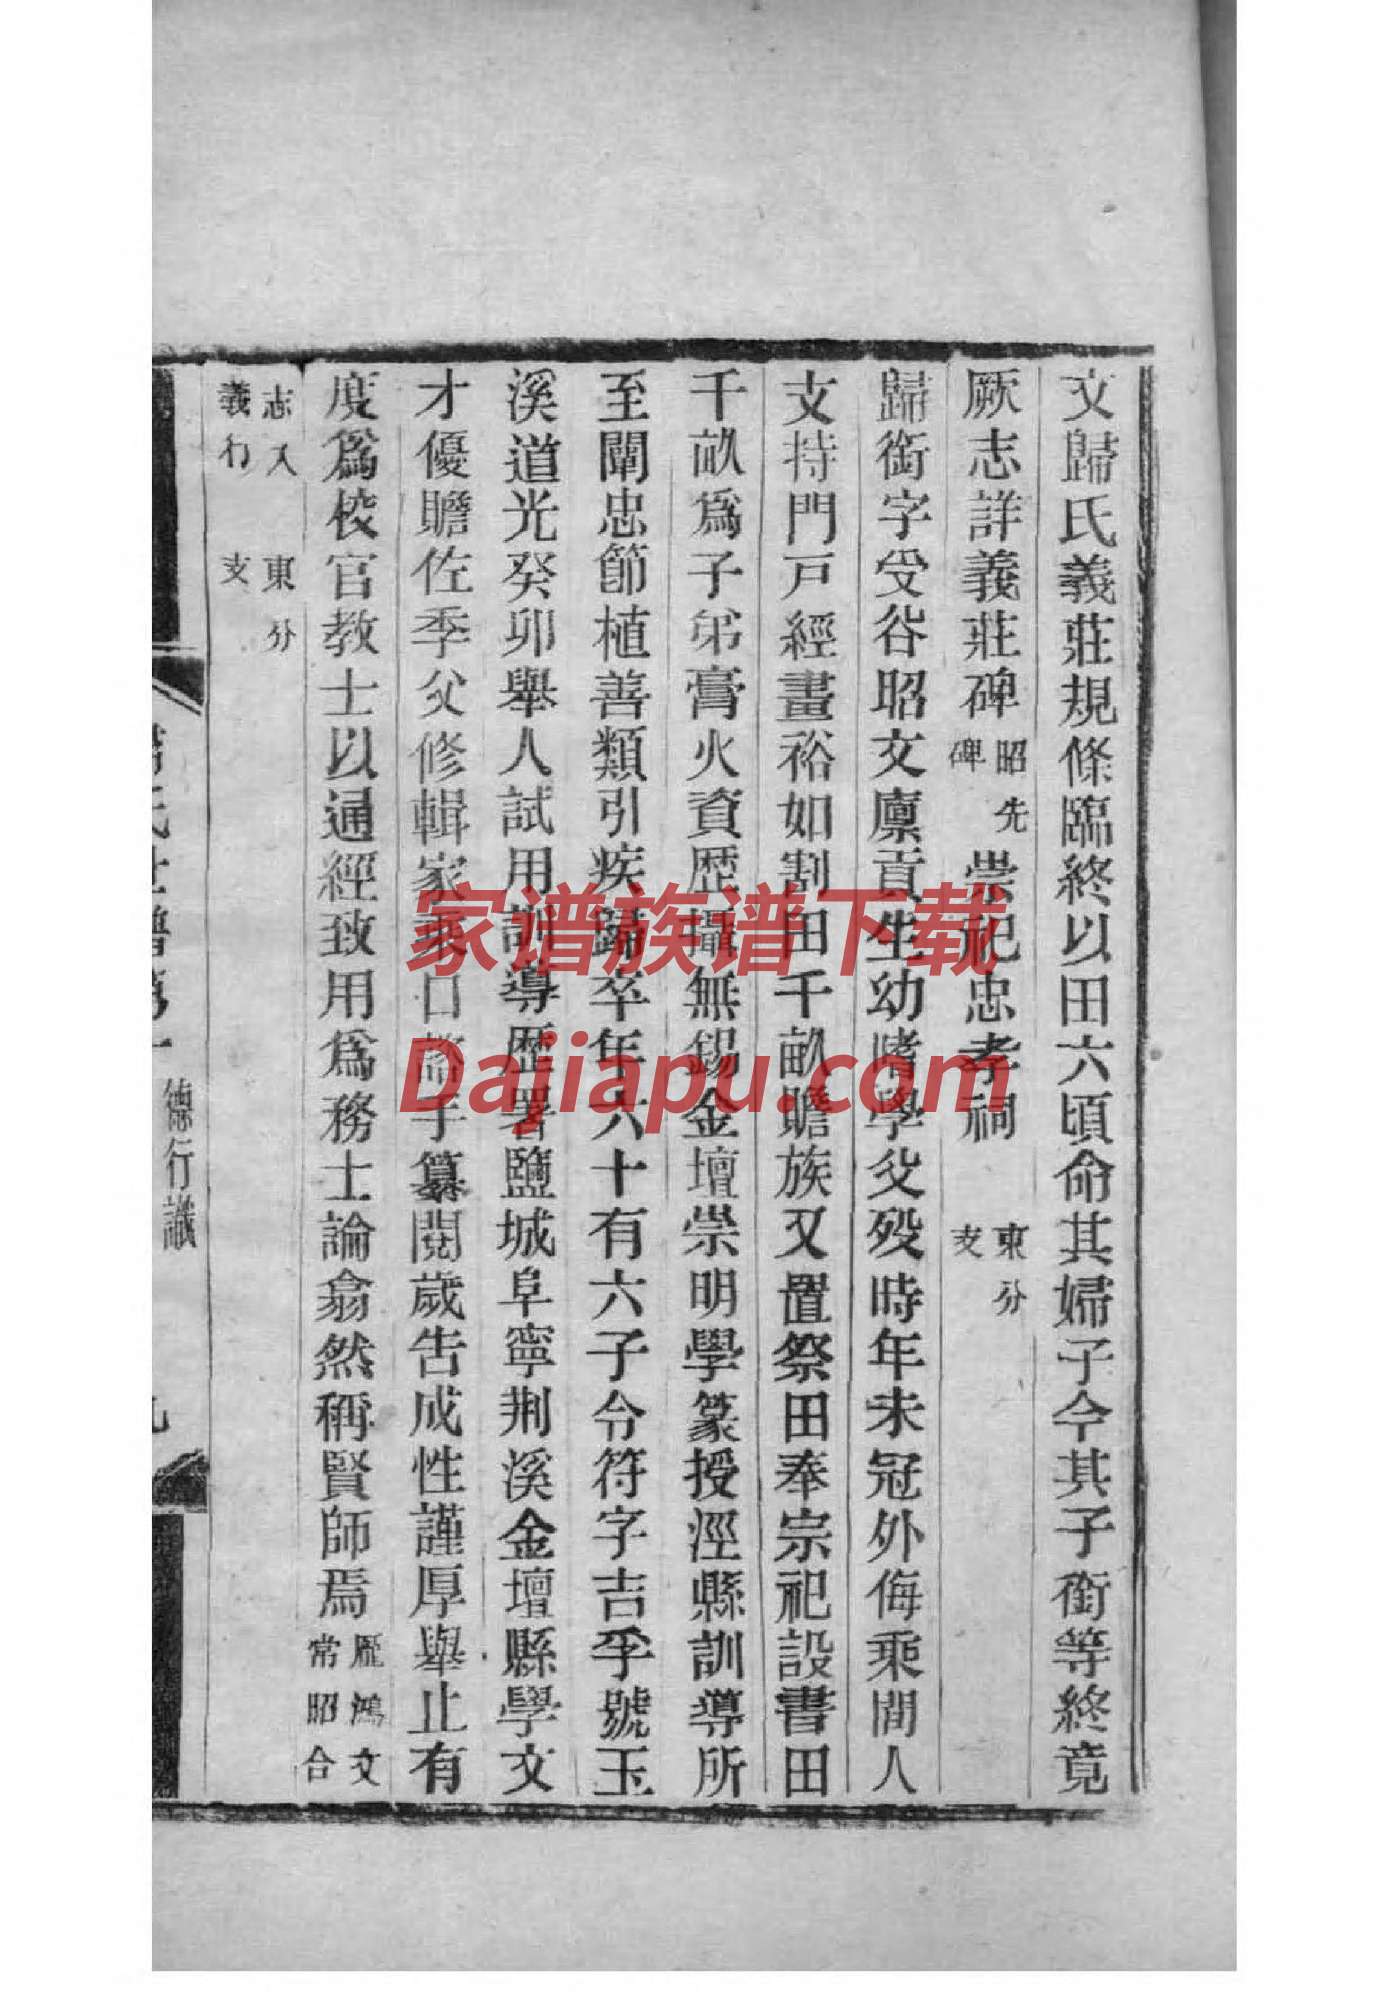 文歸氏義莊規條臨終以田六頃命其婦子令其子銜等終竟
厥志詳義莊碑昭先碑崇祀忠孝祠東分支
歸銜字受谷昭文廩貢生幼嗜學父殁時年未冠外侮乘間人
支持門戸經畫裕如割田千畝贍族又置祭田奉宗祀設書田
千畝爲子弟膏火資歴攝無錫金壇崇明學篆授涇縣訓導所
至闡忠節植善類引疾歸卒年六十有六子令符字吉孚號玉
溪道光癸卯舉人試用訓導歴署鹽城阜寧荆溪金壇縣學文
才優贍佐季父修輯家乘口 手纂閱歲告成性謹厚舉止有
度爲校官教士以通經致用爲務士論翕然稱賢師焉龎鴻文常昭合
志人義行東分支
氏世譜第一
德行譏
九
家谱族谱下载
Dajiapu.com